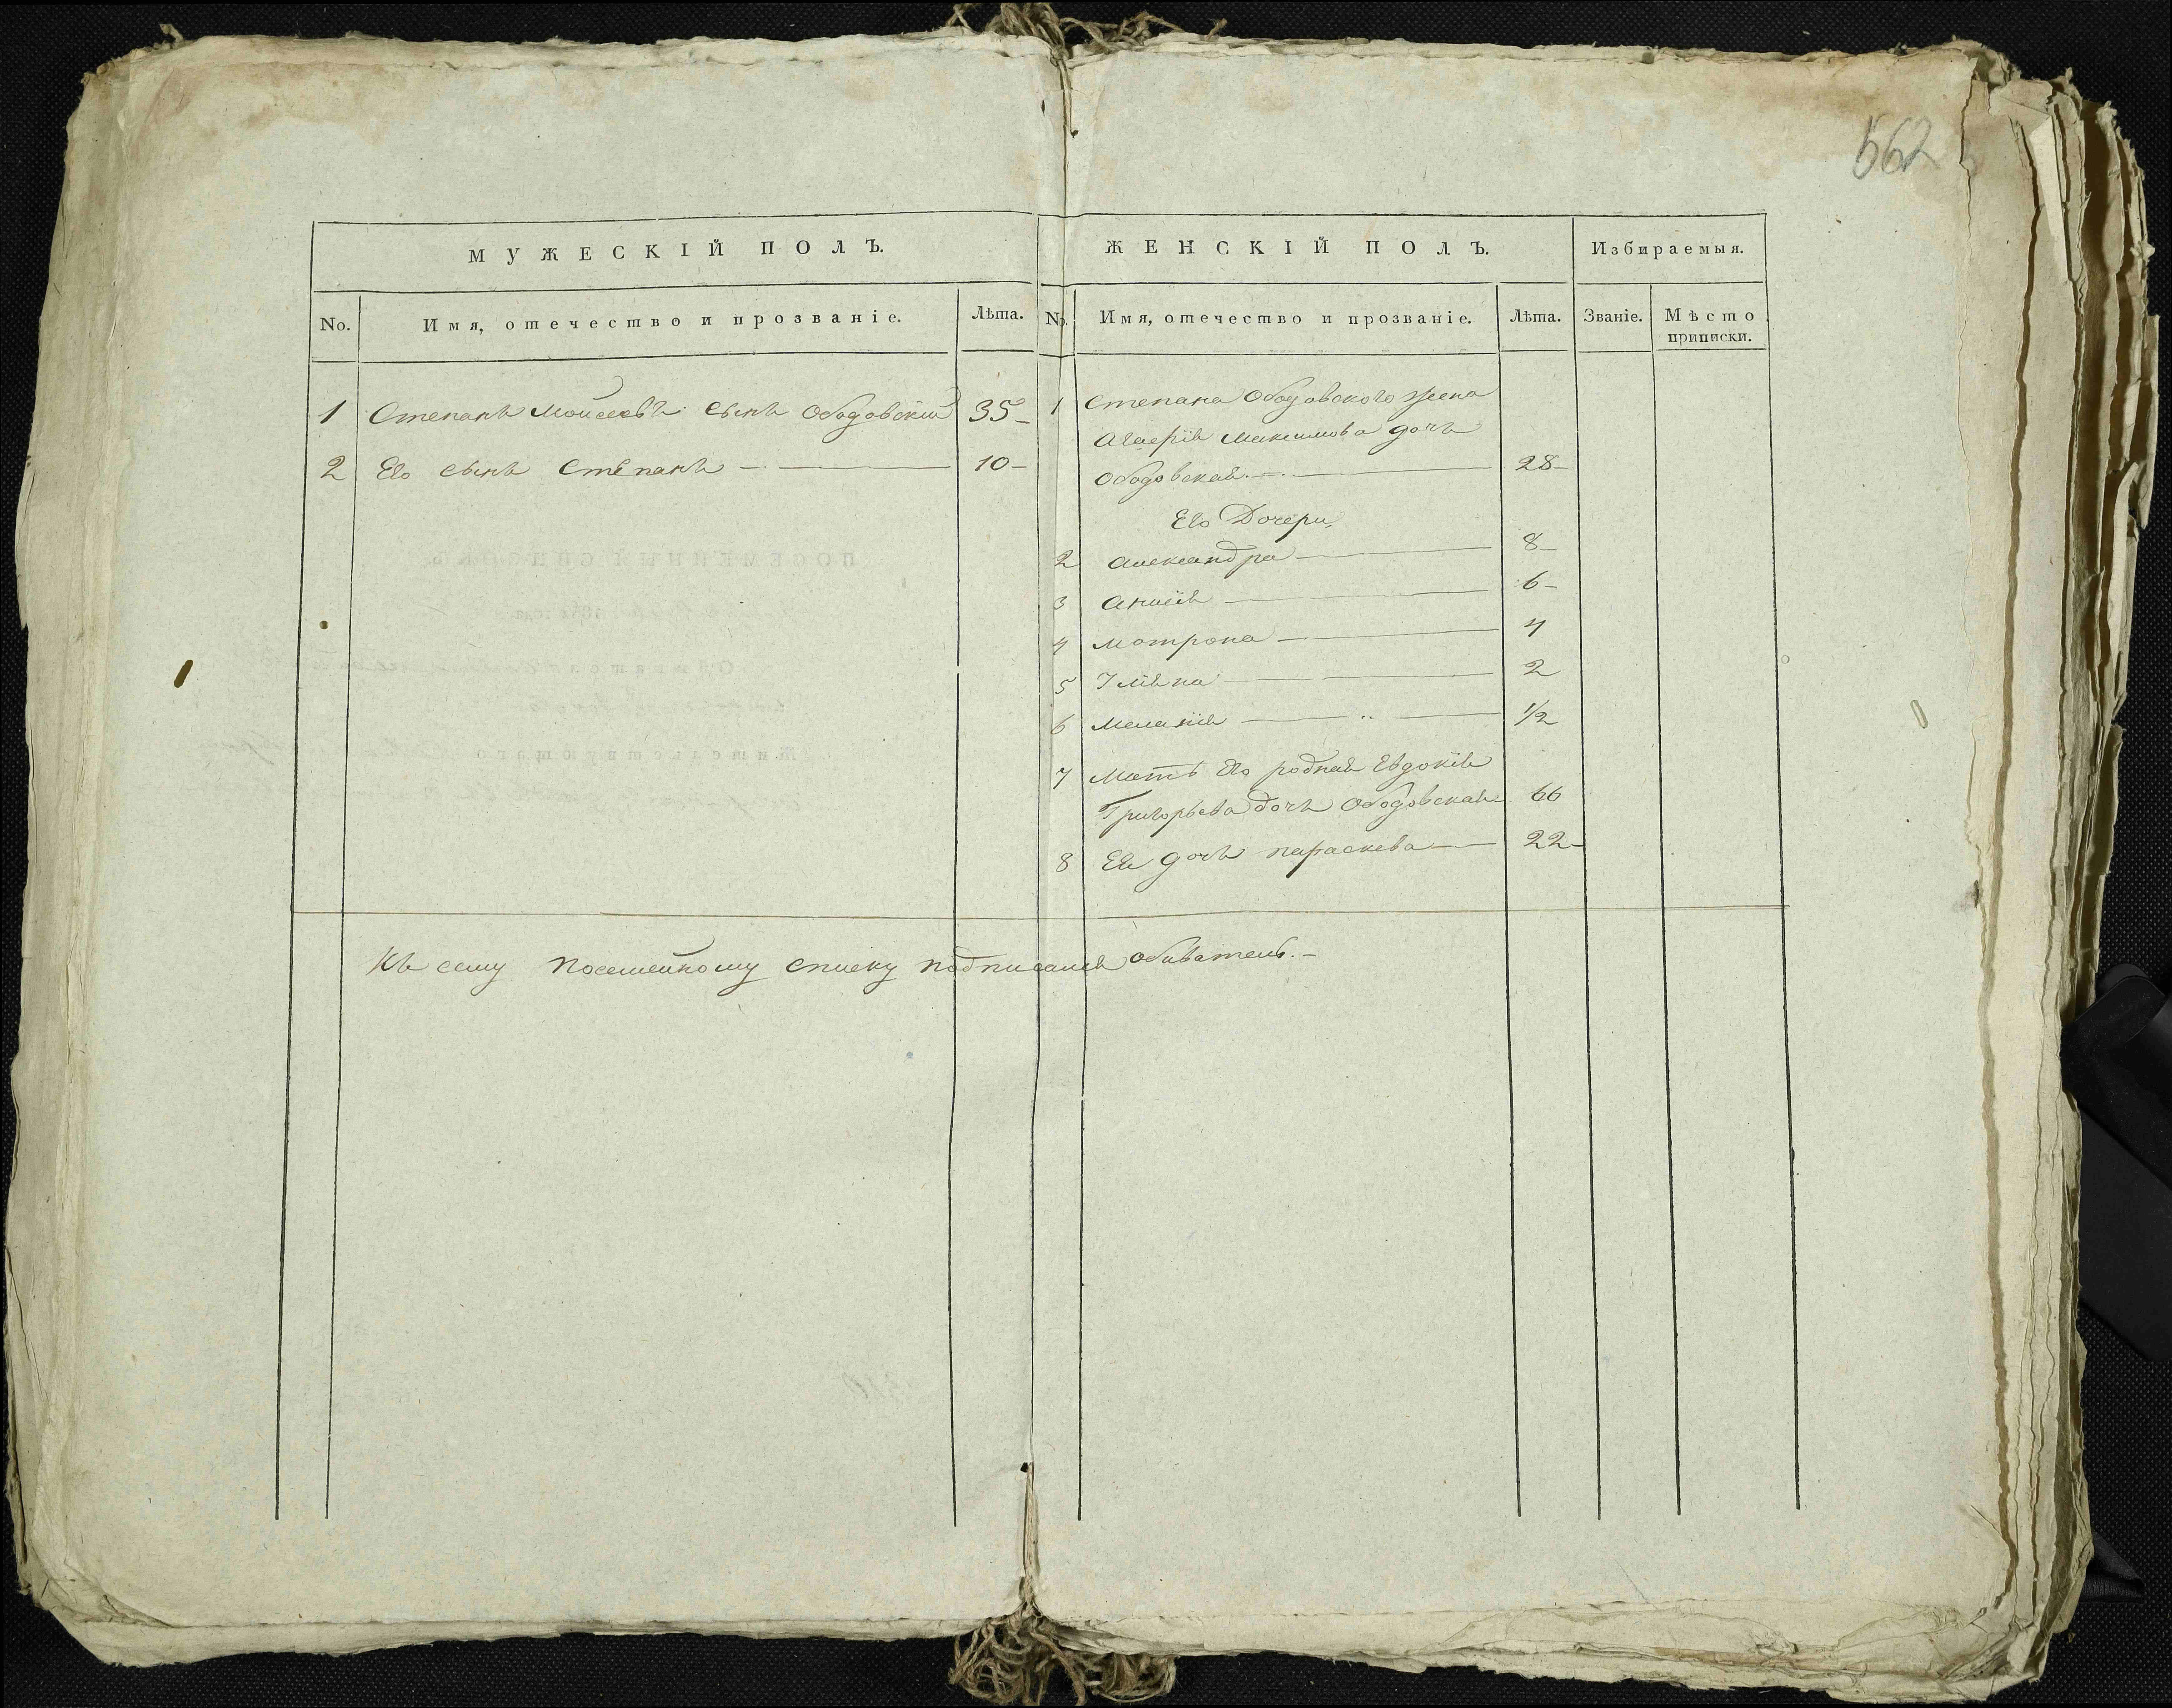 562
МУЖЕСКІЙ ПОЛЪ.
No. Имя, отечество и прозваніе. Лѣта.
1 Степанъ Мойсеевъ сынъ Ободовскій 35
2 Его сынъ Степанъ 10
ЖЕНСКІЙ ПОЛЪ. Избираемыя.
No. Имя, отечество и прозваніе. Лѣта. Званіе. Мѣсто
приписки.
1 Степана Ободовского жена
Максимова дочь
Ободовская 28
Его Дочери
2 Александра 8
3 6
4 Мотрона 4
5 2
6 Меланія 1/2
7 Мать Его родная Евдокія
Григорьева дочь Ободовская 66
8 Ея дочь параскева 22
Къ сему посемейному списку подписался обиватель.